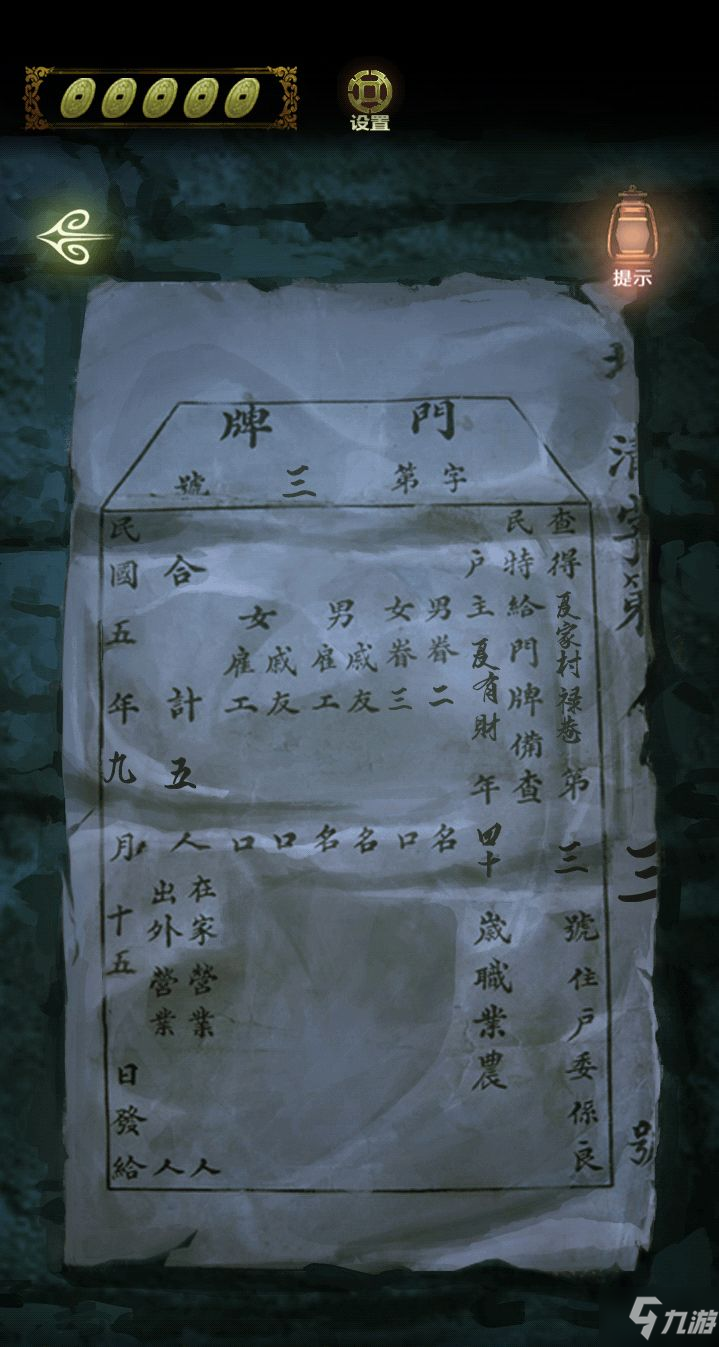 设置
提示
門牌
字第三號
清字第
三
號
查得夏家村禄巷第三號住戶委係良
民特給門牌備查
戶主夏有財年四十歲職業農
男眷二名
女眷三口
男戚友名
男雇工名
女戚友口
女雇工口
合計五人
在家營業人
出外營業人
民國五年九月十五日發給
九游